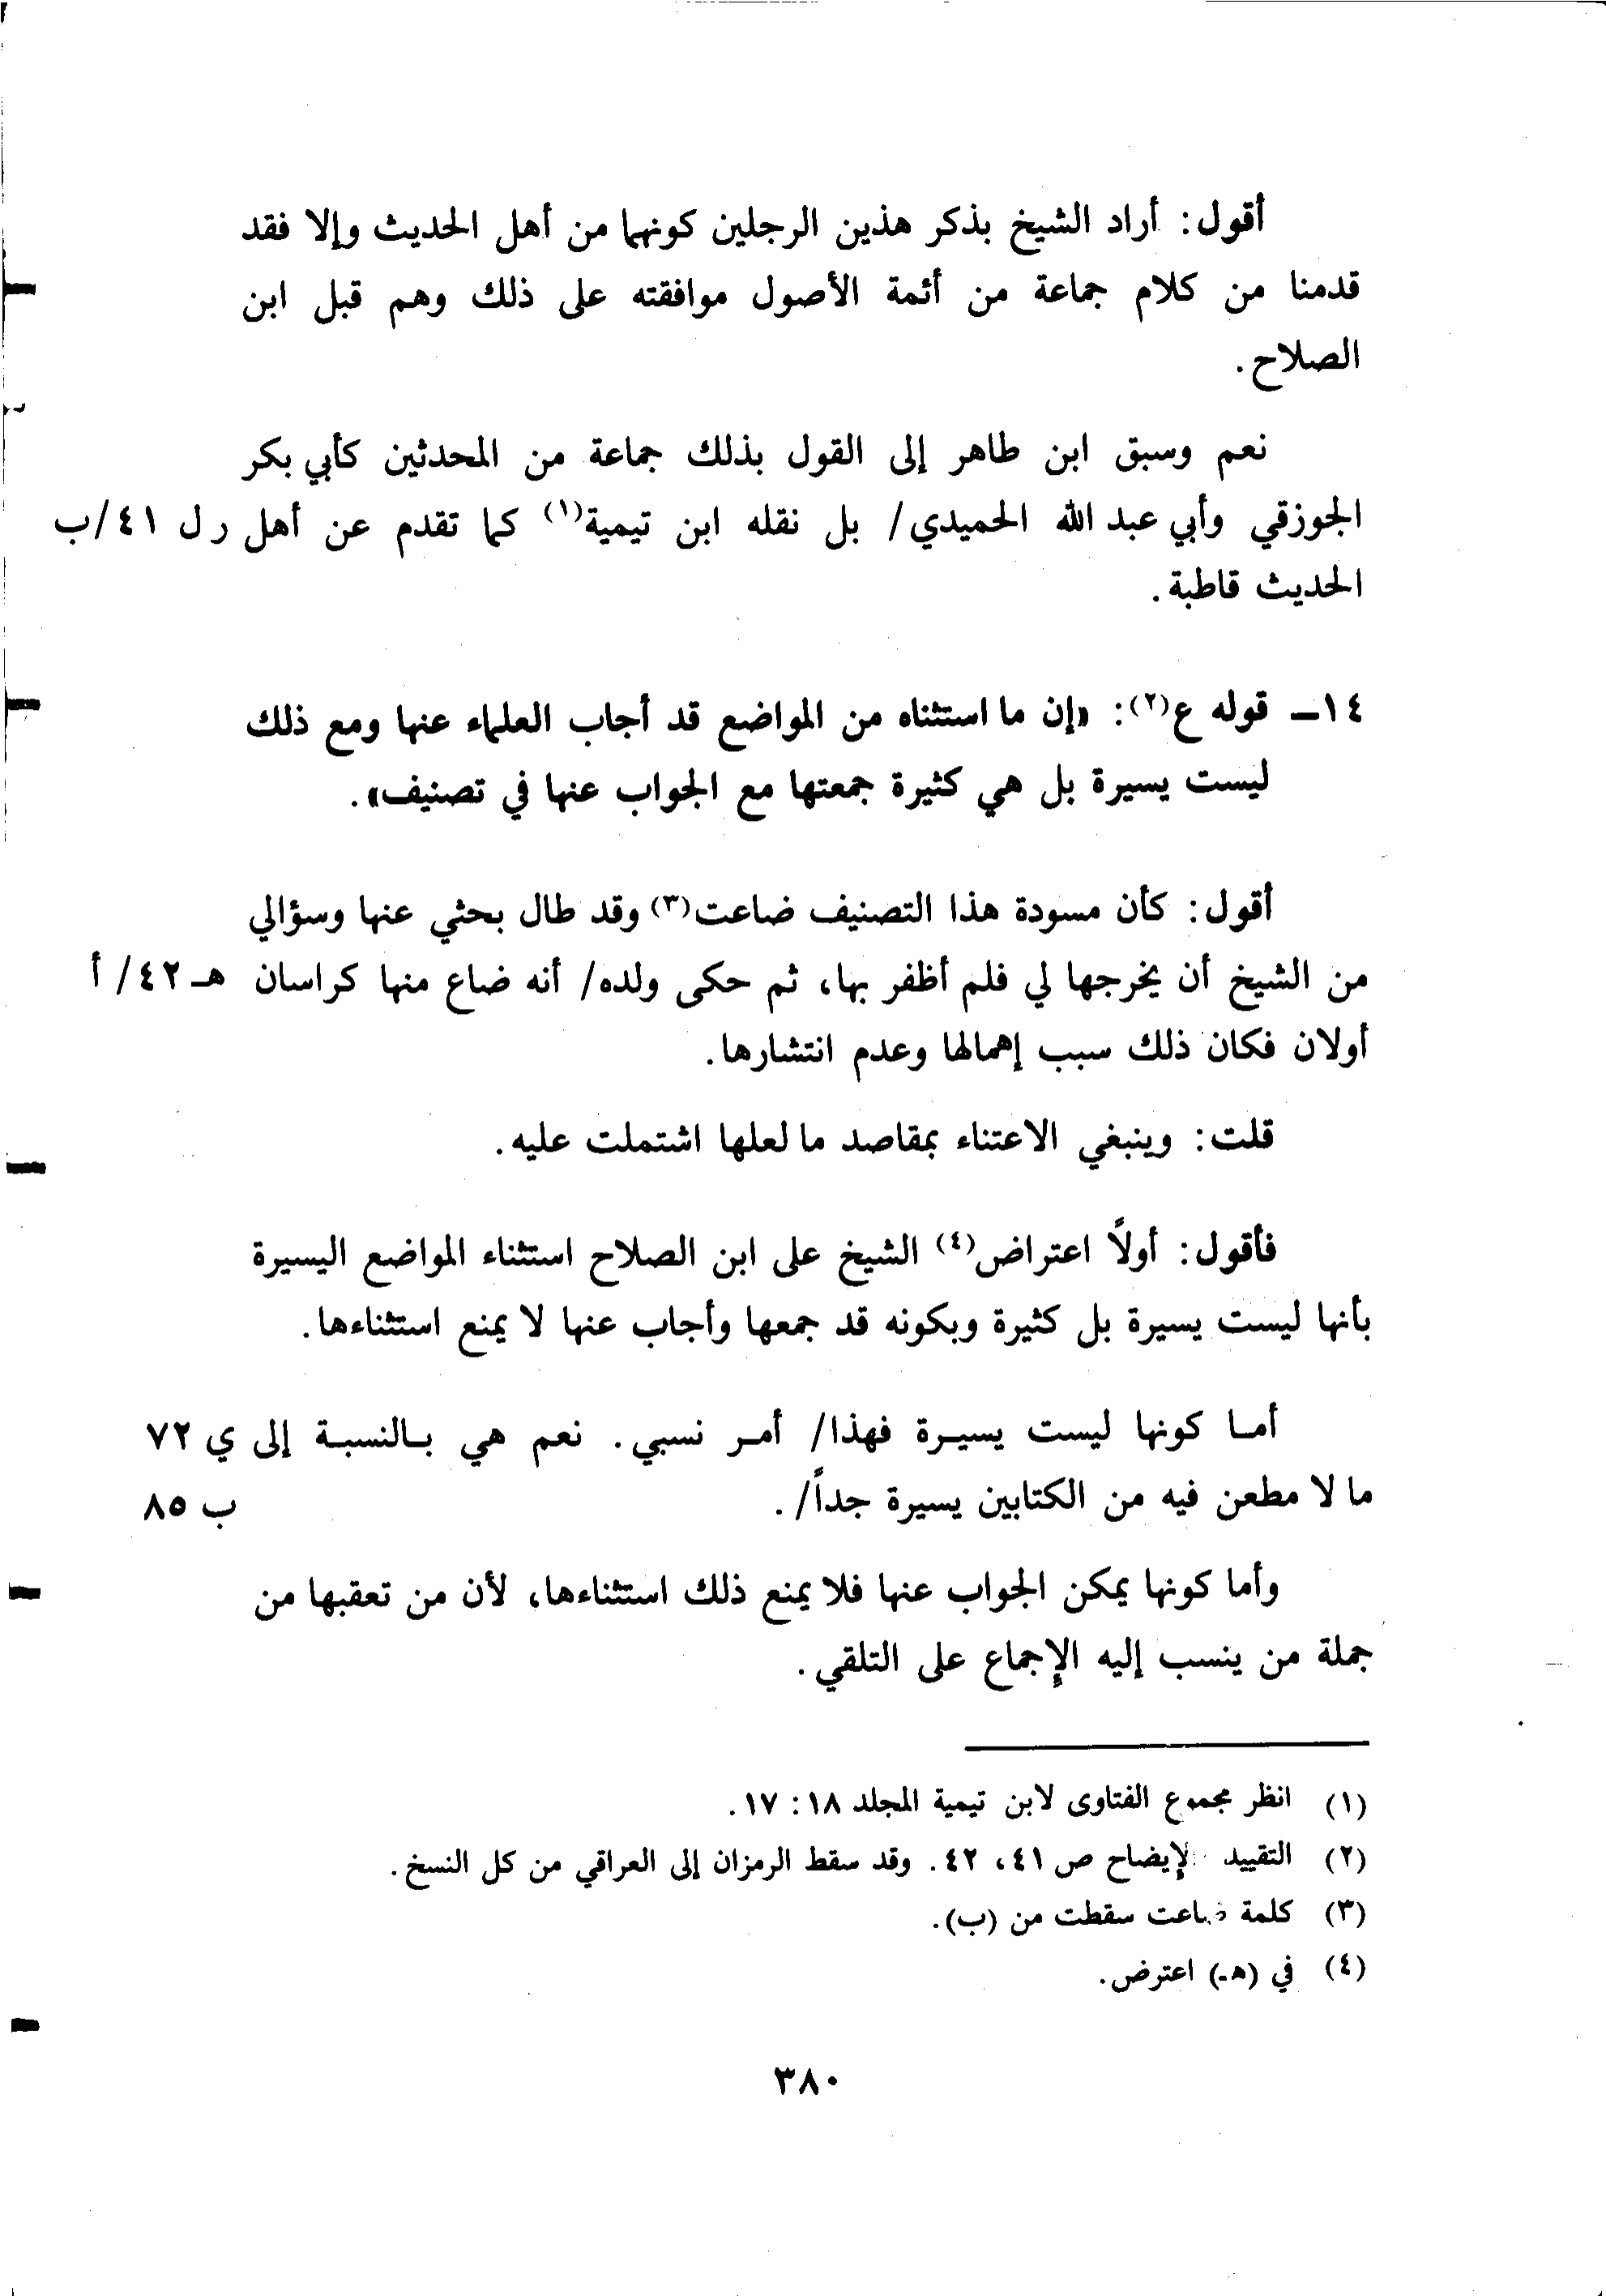 أقول: أراد الشيخ بذكر هذين الرجلين كونهما من أهل الحديث وإلا فقد
قدمنا من كلام جماعة من أئمة الأصول موافقته على ذلك وهم قبل ابن
الصلاح.
نعم وسبق ابن طاهر إلى القول بذلك جماعة من المحدثين كأبي بكر
الجوزقي وأبي عبد الله الحميدي/ بل نقله ابن تيمية(١) كما تقدم عن أهل ر ل ٤١/ب
الحديث قاطبة.
١٤ـ قوله ع(٢): «إن ما استثناه من المواضع قد أجاب العلماء عنها ومع ذلك
ليست يسيرة بل هي كثيرة جمعتها مع الجواب عنها في تصنيف».
أقول: كأن مسودة هذا التصنيف ضاعت(٣) وقد طال بحثي عنها وسؤالي
من الشيخ أن يخرجها لي فلم أظفر بها، ثم حكى ولده/ أنه ضاع منها كراسان هـ ٤٢/ أ
أولان فكان ذلك سبب إهمالها وعدم انتشارها.
قلت: وينبغي الاعتناء بمقاصد ما لعلها اشتملت عليه.
فأقول: أولاً اعتراض(٤) الشيخ على ابن الصلاح استثناء المواضع اليسيرة
بأنها ليست يسيرة بل كثيرة وبكونه قد جمعها وأجاب عنها لا يمنع استثناءها.
أما كونها ليست يسيرة فهذا/ أمر نسبي. نعم هي بالنسبة إلى ي ٧٢
ما لا مطعن فيه من الكتابين يسيرة جداً/. ب ٨٥
وأما كونها يمكن الجواب عنها فلا يمنع ذلك استثناءها، لأن من تعقبها من
جملة من ينسب إليه الإجماع على التلقي.
(١) انظر مجموع الفتاوى لابن تيمية المجلد ١٨: ١٧.
(٢) التقييد الإيضاح ص ٤١، ٤٢. وقد سقط الرمزان إلى العراقي من كل النسخ.
(٣) كلمة ضاعت سقطت من (ب).
(٤) في (هـ) اعترض.
٣٨٠